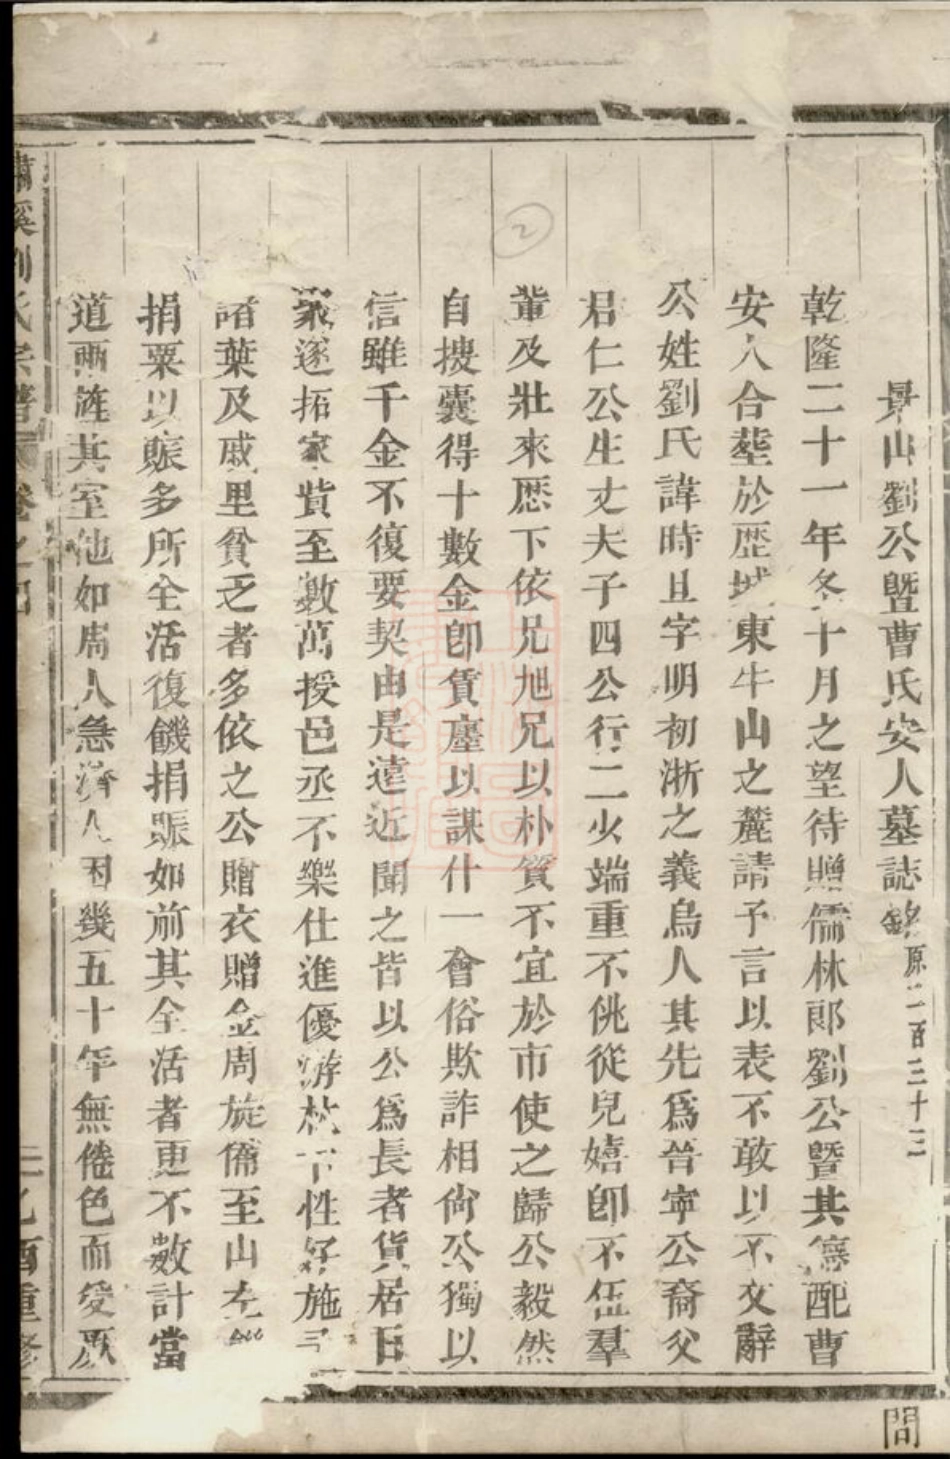 景山劉公暨曹氏安人墓誌銘原二百三十三
乾隆二十一年冬十月之望待贈儒林郎劉公暨其德配曹
安人合葬於歷城東牛山之麓請予言以表不敢以不文辭
公姓劉氏諱時旦字明初浙之義烏人其先為晉寧公裔父
君仁公生丈夫子四公行二少端重不佻從兒嬉即不伍羣
輩及壯來歷下依兄旭兄以朴質不宜於市使之歸公毅然
自搜囊得十數金即賃廛以謀什一會俗欺詐相尚公獨以
信雖千金不復要契由是遠近聞之皆以公為長者貨居日
衆遂拓家貲至數萬授邑丞不樂仕進優游林下性好施
諸葉及戚里貧乏者多依之公贈衣贈金周旋備至山左饑
捐粟以賑多所全活復饑捐賑如前其全活者更不數計當
道兩旌其室他如周人急濟人困幾五十年無倦色而愛厥
繡溪劉氏宗譜 卷之四 二 乙酉重修
問
2